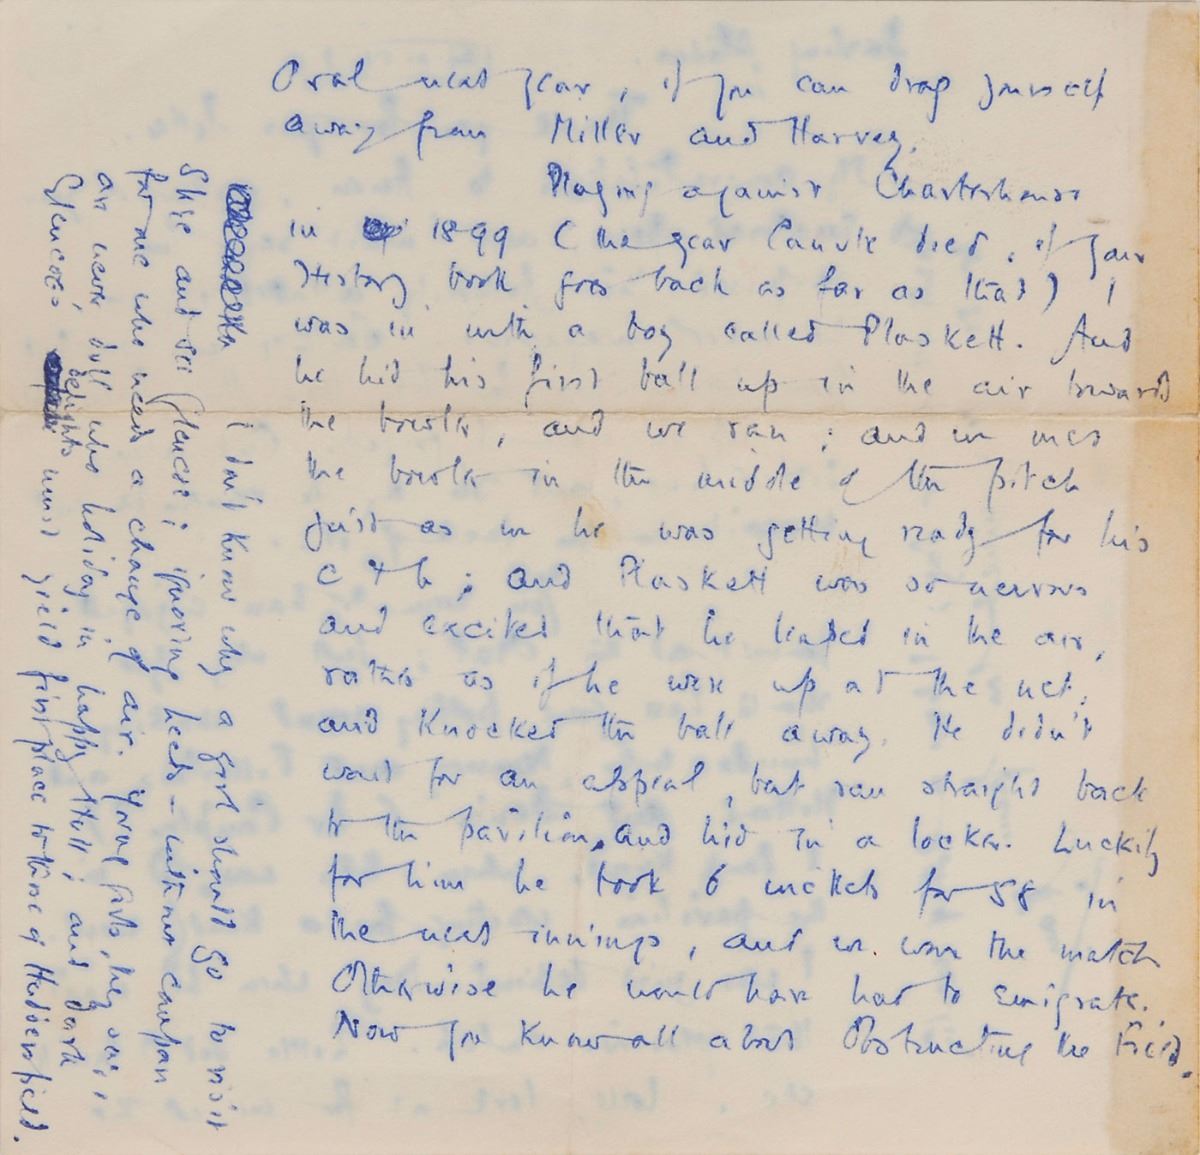 Oval next year, if you can drag yourself
away from Miller and Harvey.
Playing against Charterhouse
in 1899 (the year Canute died, if your
History book goes back as far as that) I
was in with a boy called Plaskett. And
he hid his first ball up in the air toward
the bowler, and we ran; and we met
the bowler in the middle of the pitch
just as he was getting ready for his
c & b; and Plaskett was so nervous
and excited that he leaped in the air,
rather as if he were up at the net,
and knocked the ball away. He didn't
wait for an appeal, but ran straight back
to the pavilion, and hid in a locker. Luckily
for him he took 6 wickets for 58 in
the next innings, and we won the match
Otherwise he would have had to emigrate.
Now you know all about Obstructing the Field.
I don't know why a girl should go to visit
Skye and see Glencoe; ignoring Leeds - with our compan
for me who needs a change of air. Young girls, they say,
are never dull who holiday in happy Hull; and dark
Glencoe's delights must yield first place to those of Huddersfield.